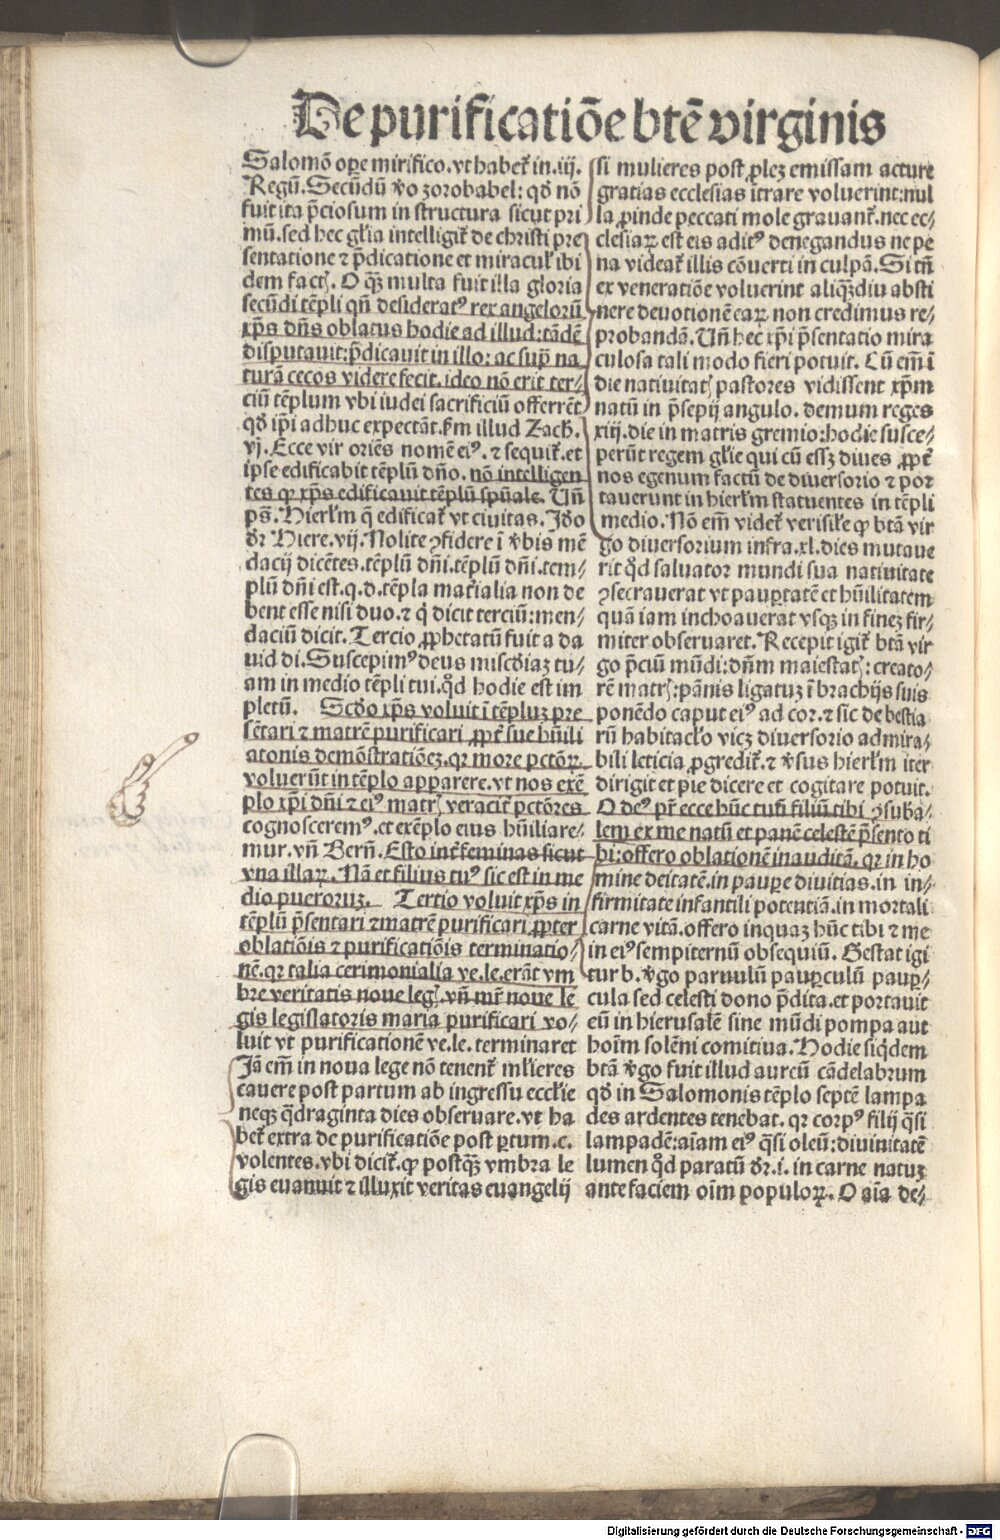 De purificatiõe btẽ virginis
Salomõ oꝑe mirifico. vt habet᷑ in .iij.
Regũ. Secũdũ ꝟo zorobabel: qđ nõ
fuit ita p̃ciosum in structura sicut pri
mũ. sed hec gl̃ia intelligit᷑ de christi pre
sentatione ⁊ p̃dicatione et miracul᷑ ibi
dem factꝭ. O qz̃ multa fuit illa gloria
secũdi tẽpli qñ desideratꝰ rex angeloꝝ
xp̃s dñs oblatus hodie ad illud: tãdẽ
disputauit: p̃dicauit in illo: ac suꝑ na
turã cecos videre fecit. ideo nõ erit ter⸗
ciũ tẽplum vbi iudei sacrificiũ offerrẽt
qđ ip̃i adhuc expectãt. ẜm illud Zach.
vj. Ecce vir oriẽs nomẽ eiꝰ. ⁊ sequit᷑. et
ipse edificabit tẽplũ dño. nõ intelligen
tes ꝙ xp̃s edificauit tẽplũ spũale. Uñ
pš. Hierl̃m q̃ edificat᷑ vt ciuitas. Iđo
đr Hiere. vij. Nolite ꝯfidere ĩ ꝟbis mẽ
dacij dicẽtes. tẽplũ dñi. tẽplũ dñi. tem⸗
plũ dñi est. q. d. tẽpla mat᷑ialia non de
bent esse nisi duo. ⁊ q̇ dicit terciũ: men⸗
daciũ dicit. Tercio ꝓphetatũ fuit a da
uid di. Suscepimꝰ deus miscđiaz tu⸗
am in medio tẽpli tui. qđ hodie est im
pletũ. Scđo xp̃s voluit ĩ tẽpluz pre
sẽtari ⁊ matrẽ purificari ꝓpt᷑ sue hũili
atonis demõstratiõez. qꝛ more pctõꝝ
voluerũt in tẽplo apparere. vt nos exẽ
plo xp̃i dñi ⁊ eiꝰ matrꝭ veracit᷑ pctõres
cognosceremꝰ. et exẽplo eius hũiliare⸗
mur. vñ Berñ. Esto int᷑ feminas sicut
vna illaꝝ. Nã et filius tuꝰ sic est in me
dio pueroruz. Tertio voluit xp̃s in
tẽplũ p̃sentari ⁊ matrẽ purificari ꝓpter
oblatiõis ⁊ purificatiõis terminatio⸗
nẽ. qꝛ talia cerimonialia ve. le. erãt vm
bre veritatis noue legꝭ. vñ mr̃ noue le
gis legislatoris maria purificari vo⸗
luit vt purificationẽ ve. le. terminaret
Jã em̃ in noua lege nõ tenent᷑ ml̃ieres
cauere post partum ab ingressu eccl̃ie
neqz q̃draginta dies obseruare. vt ha
bet᷑ extra de purificatiõe post ꝑtum. c.
volentes. vbi dicit᷑. ꝙ postqz̃ vmbra le
gis euanuit ⁊ illuxit veritas euangelij
si mulieres post ꝓlez emissam acture
gratias ecclesias ĩtrare voluerint: nul
la ꝓinde peccati mole grauant᷑. nec ec⸗
clesiaꝝ est eis aditꝰ denegandus ne pe
na videat᷑ illis cõuerti in culpã. Si tñ
ex veneratiõe voluerint aliqz̃diu absti
nere deuotionẽ eaꝝ non credimus re⸗
probandã. Uñ hec xp̃i p̃sentatio mira
culosa tali modo fieri potuit. Cũ em̃ ĩ
die natiuitatꝭ pastores vidissent xp̃m
natũ in p̃sepij angulo. demum reges
xiij. die in matris gremio: hodie susce⸗
perũt regem gl̃ie qui cũ essz diues ꝓpt᷑
nos egenum factũ de diuersorio ⁊ por
tauerunt in hierl̃m statuentes in tẽpli
medio. Nõ em̃ videt᷑ verisil̃e ꝙ btã vir
go diuersorium infra .xl. dies mutaue
rit qđ saluator mundi sua natiuitate
ꝯsecrauerat vt pauꝑtatẽ et hũilitatem
quã iam inchoauerat vsqz in finez fir⸗
miter obseruaret. Recepit igit᷑ btã vir
go p̃ciũ mũdi: dñm maiestatꝭ: creato⸗
rẽ matrꝭ: pãnis ligatuz ĩ brachijs suis
ponẽdo caput eiꝰ ad cor. ⁊ sic de bestia
rũ habitacl̃o vicz diuersorio admira⸗
bili leticia ꝓgredit᷑. ⁊ ꝟsus hierl̃m iter
dirigit et pie dicere et cogitare potuit.
O deꝰ pr̃ ecce hũc tuũ filiũ tibi ꝯsuba⸗
lem ex me natũ et panẽ celestẽ p̃sento ti
bi: offero oblationẽ inauditã. qꝛ in ho
mine deitatẽ. in pauꝑe diuitias. in in⸗
firmitate infantili potentiã. in mortali
carne vitã. offero inquaz hũc tibi ⁊ me
in eiꝰ sempiternũ obsequiũ. Gestat igi
tur b. ꝟgo paruulũ pauꝑculũ pauꝑ⸗
cula sed celesti dono p̃dita. et portauit
eũ in hierusalẽ sine mũdi pompa aut
hoĩm solẽni comitiua. Hodie siq̇dem
btã ꝟgo fuit illud aureũ cãdelabrum
qđ in Salomonis tẽplo septẽ lampa
des ardentes tenebat. qꝛ corpꝰ filij q̃si
lampadẽ: aĩam eiꝰ q̃si oleũ: diuinitatẽ
lumen qđ paratũ đr. i. in carne natuz
ante faciem oĩm populoꝝ. O aĩa de⸗
Digitalisierung gefördert durch die Deutsche Forschungsgemeinschaft - DFG